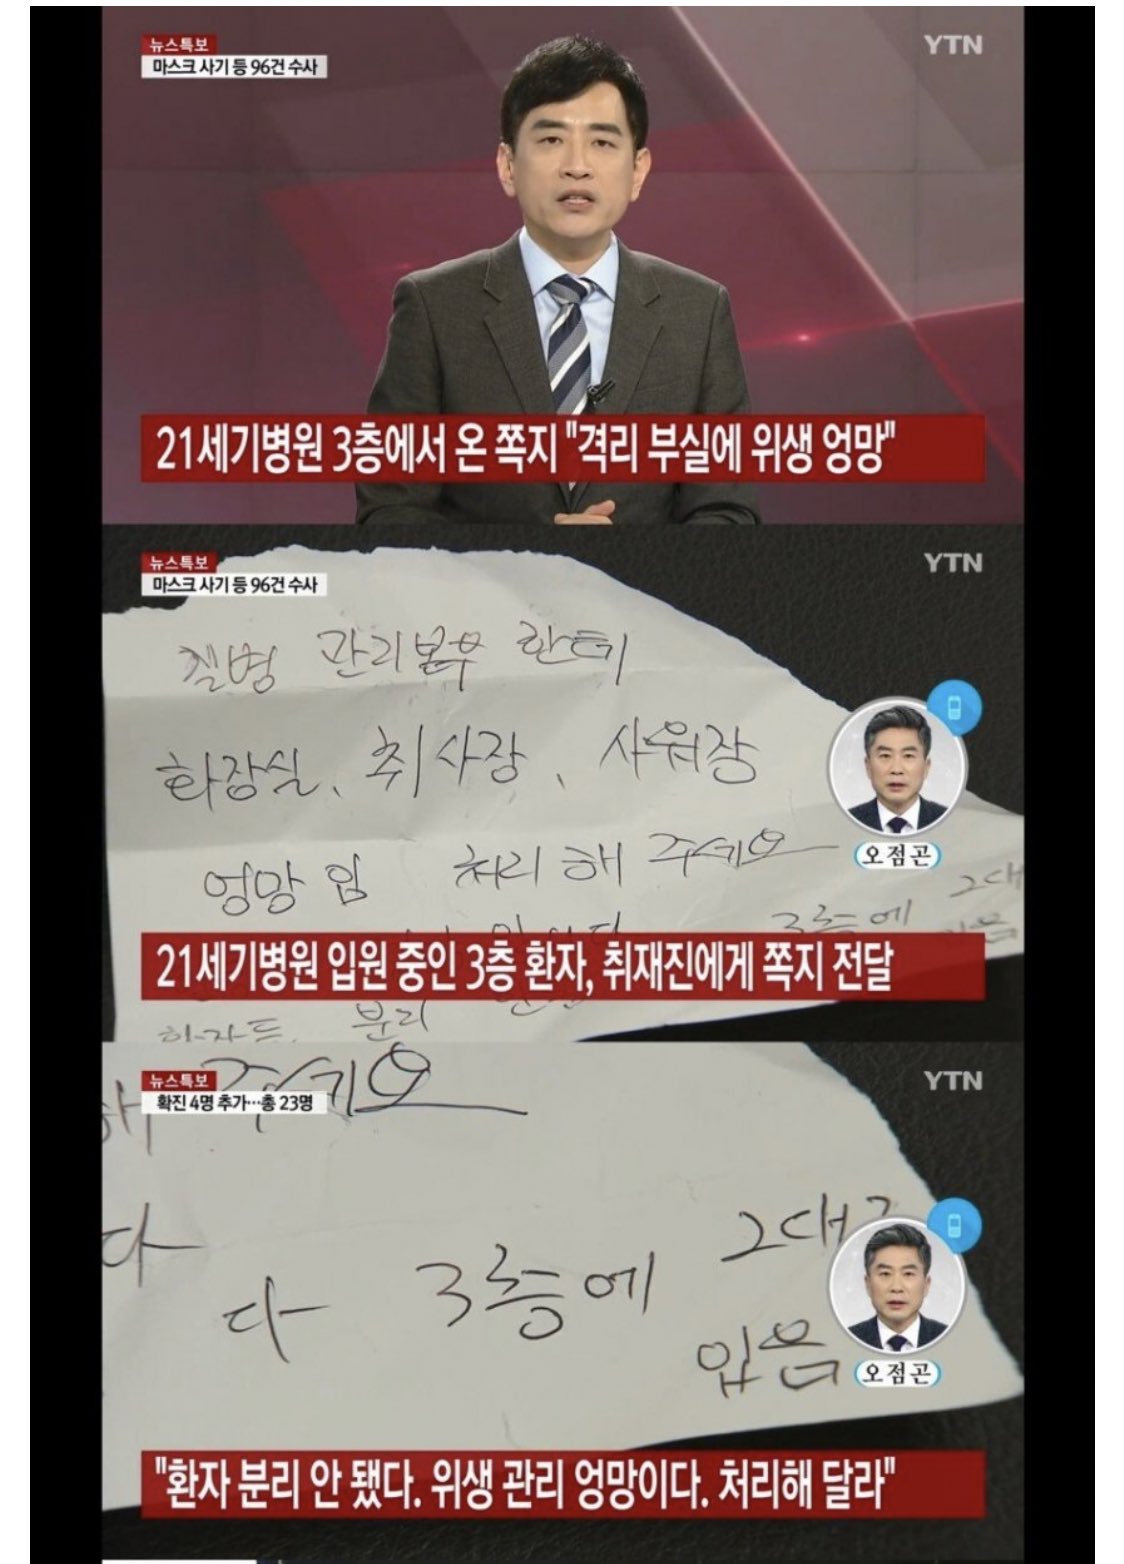 뉴스특보
마스크 사기 등 96건 수사
YTN
21세기병원 3층에서 온 쪽지 "격리 부실에 위생 엉망"
뉴스특보
마스크 사기 등 96건 수사
YTN
질병 관리본부 한테
화장실, 취사장, 샤워장
엉망임 처리해 주세요
3층에 그대
오점곤
21세기병원 입원 중인 3층 환자, 취재진에게 쪽지 전달
분리
뉴스특보
확진 4명 추가…총 23명
YTN
해 주세요
다
다 3층에 그대
있음
오점곤
"환자 분리 안 됐다. 위생 관리 엉망이다. 처리해 달라"